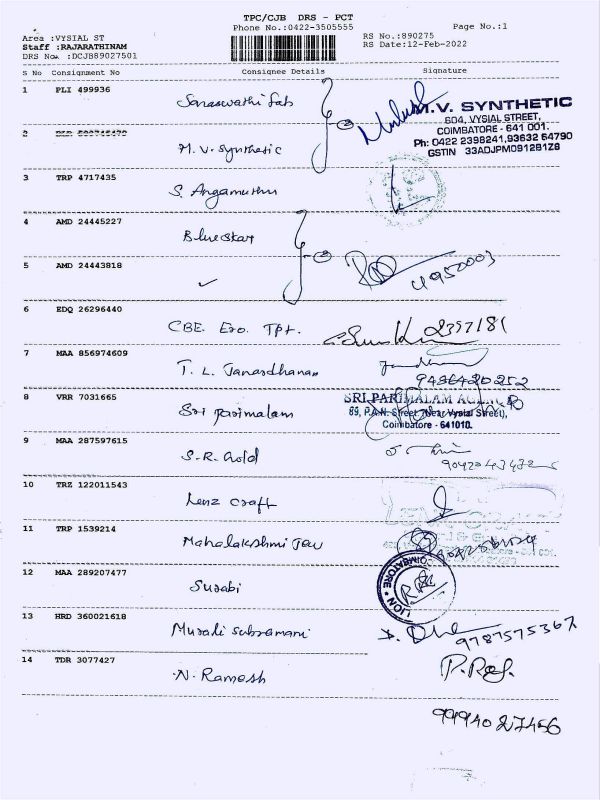 TPC/CJB DRS - PCT
Phone No.:0422-3505555
Page No.:1
Area :VYSIAL ST
Staff :RAJARATHINAM
DRS No. :DCJB89027501
RS No.:890275
RS Date:12-Feb-2022
S No Consignment No Consignee Details Signature
1 PLI 499936 Saraswathi fab
M.V. SYNTHETIC
604, VYSIAL STREET,
COIMBATORE - 641 001.
Ph: 0422 2398241,93632 64790
GSTIN 33ADJPM0912B1Z8
2 M.V. Synthetic
3 TRP 4717435 S. Angamuthu
4 AMD 24445227 Blue star
5 AMD 24443818 ✓ 4950003
6 EDQ 26296440 CBE. Exo. Tpt. 2397181
7 MAA 856974609 T. L. Janardhanan
8 VRR 7031665 Sri parimalam
SRI PARIMALAM
89, P.A.N. Street (Near Vysial Street),
Coimbatore - 641010.
9 MAA 287597615 S.R. Gold
10 TRZ 122011543 Lenz craft
11 TRP 1539214 Mahalakshmi Jew
12 MAA 289207477 Surabi
COIMBATORE LION
13 HRD 360021618 Murali Subramani 9787575367
14 TDR 3077427 N. Ramesh
99940 27456